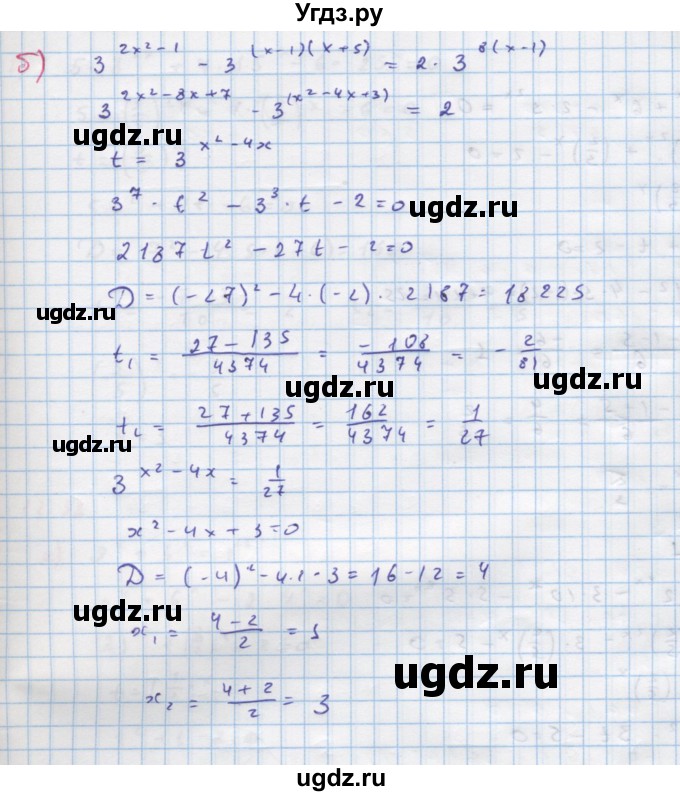 Угдз.ру
б) 3^(2x²-1) - 3^((x-1)(x+5)) = 2 · 3^(8(x-1))
3^(2x²-8x+7) - 3^((x²-4x+3)) = 2
ugdz.ru
ugdz.ru
t = 3^(x²-4x)
3^7 · t² - 3³ · t - 2 = 0
ugdz.ru
2187 t² - 27t - 2 = 0
D = (-27)² - 4·(-2) · 2187 = 18225
ugdz.ru
t₁ = (27-135)/4374 = -108/4374 = -2/81
ugdz.ru
t₂ = (27+135)/4374 = 162/4374 = 1/27
ugdz.ru
3^(x²-4x) = 1/27
x² - 4x + 3 = 0
D = (-4)² - 4·1·3 = 16-12 = 4
ugdz.ru
x₁ = (4-2)/2 = 1
ugdz.ru
x₂ = (4+2)/2 = 3
ugdz.ru
ugdz.ru